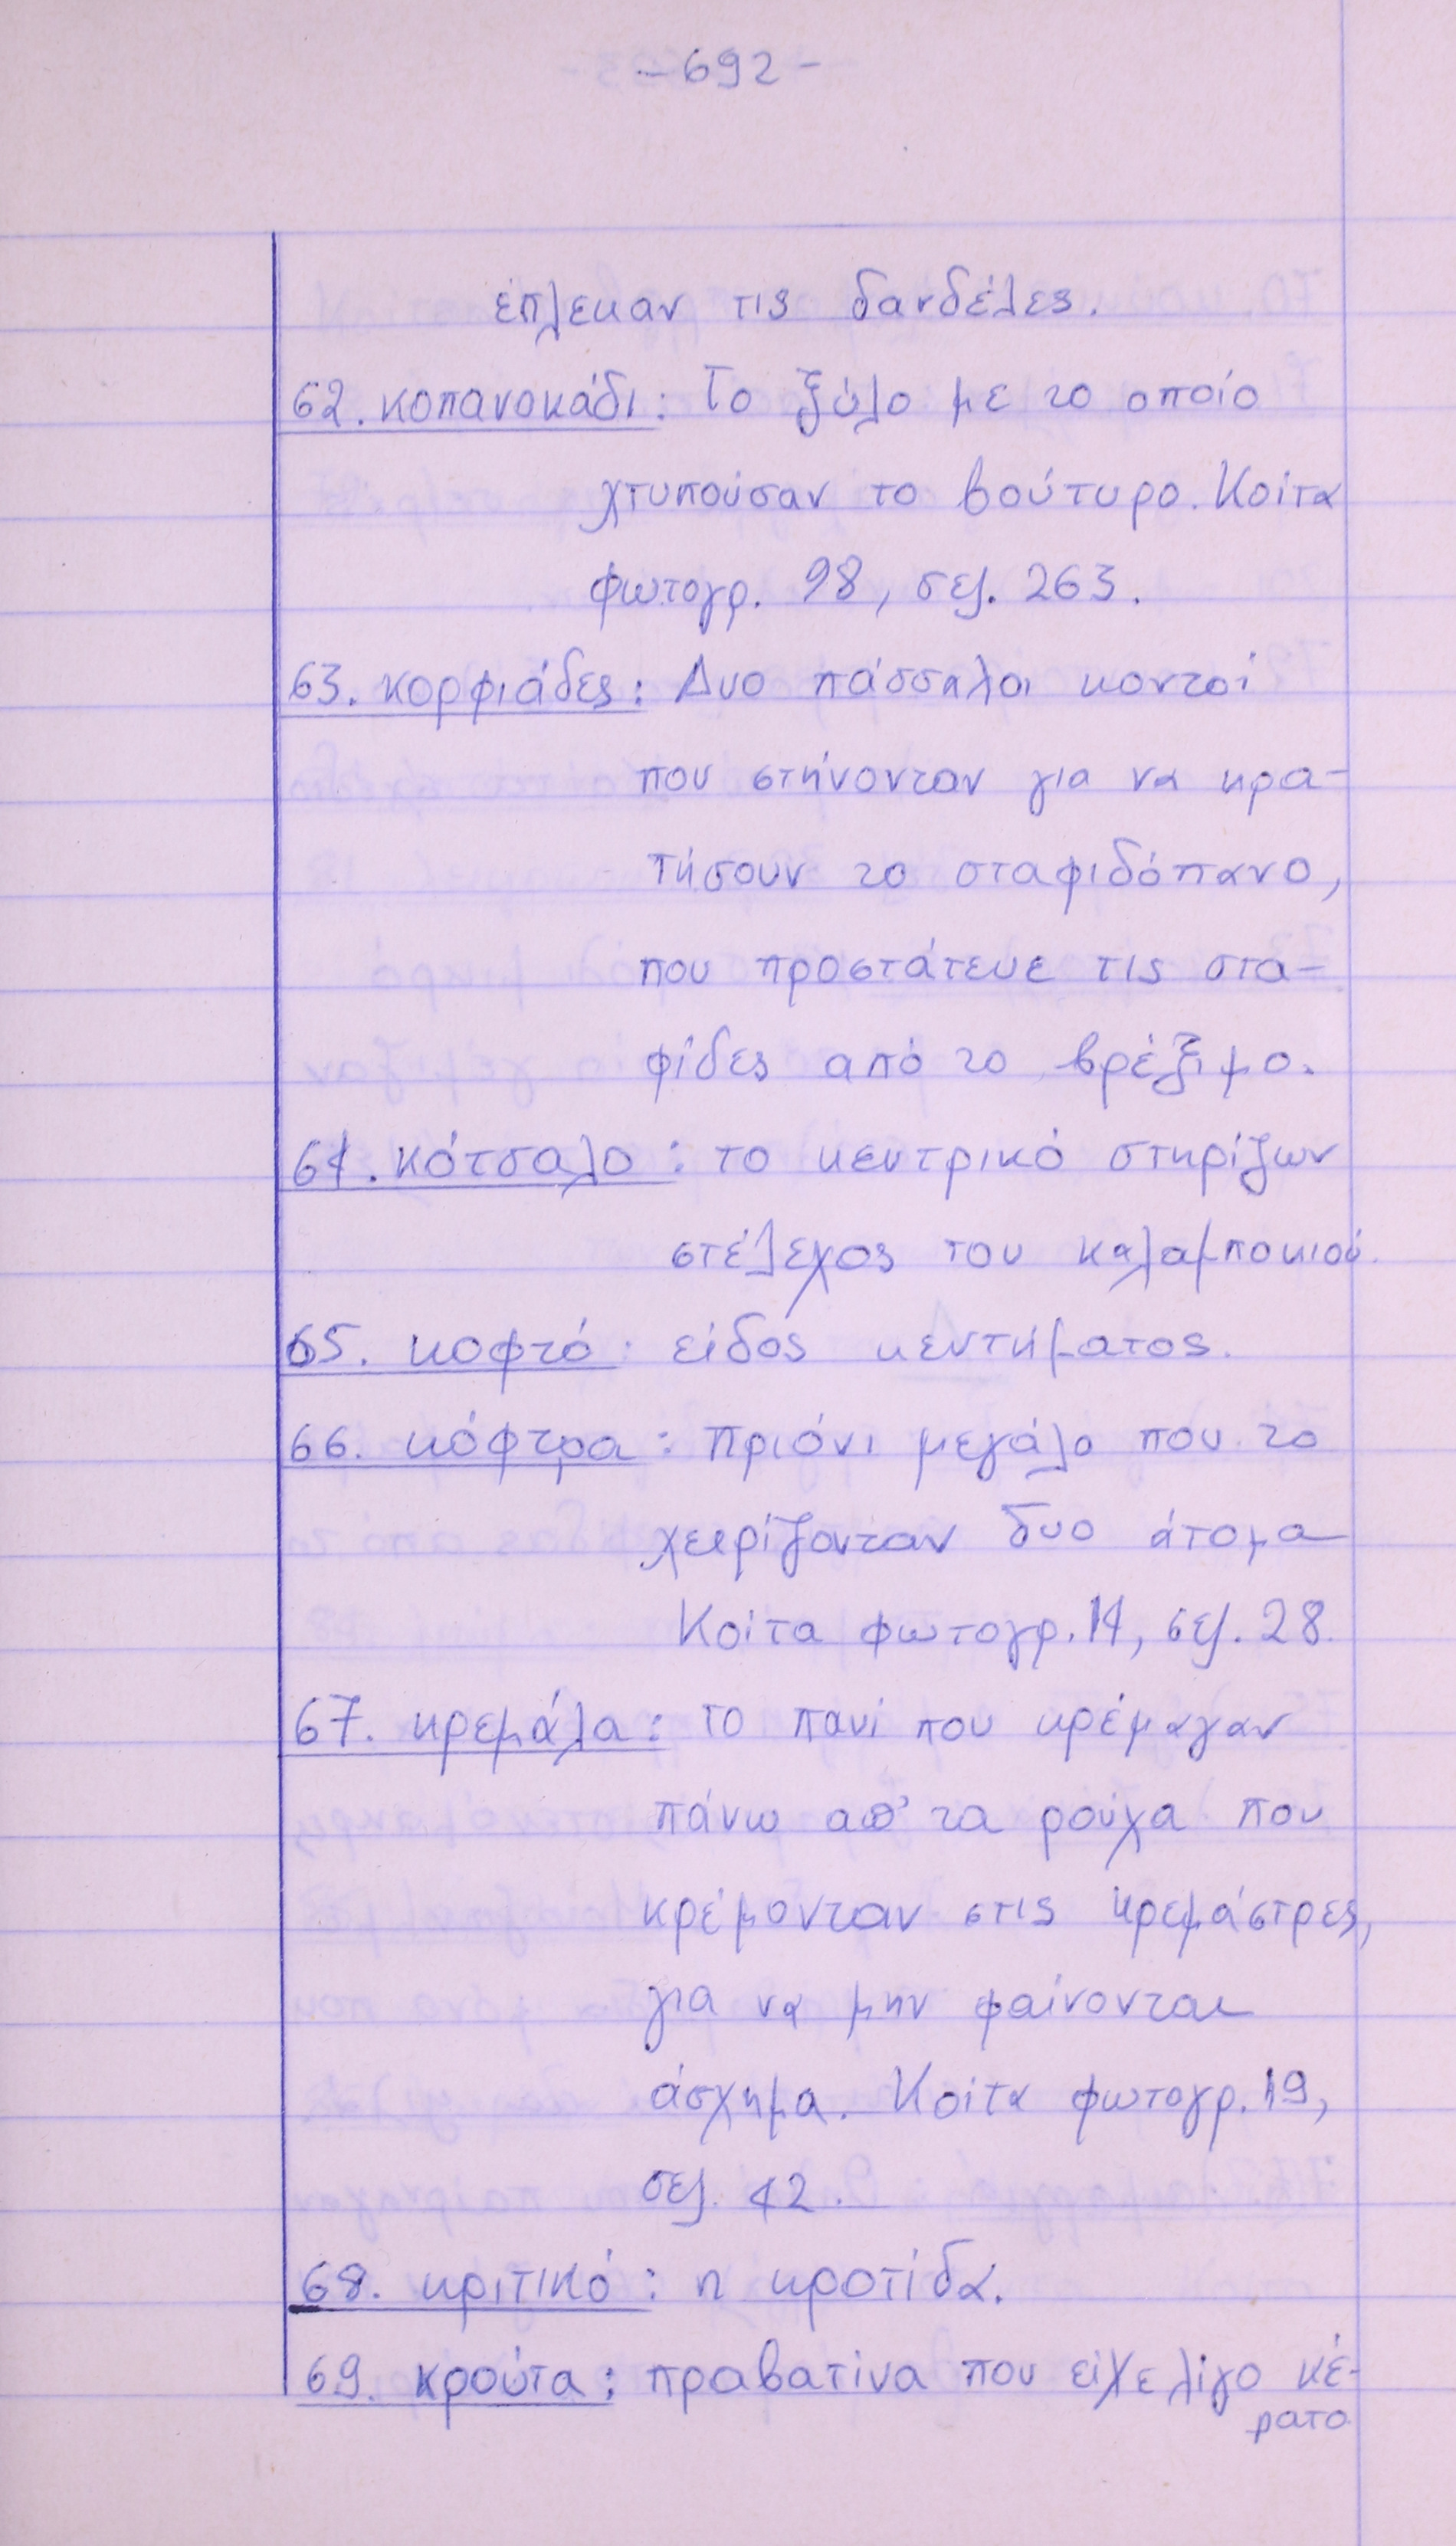 -692-
έπλεκαν τις δανδέλες.
62. κοπανοκάδι: Το ξύλο με το οποίο
χτυπούσαν το βούτυρο. Κοίτα
φωτογρ. 98, σελ. 263.
63. κορφιάδες: Δυο πάσσαλοι κοντοί
που στήνονταν για να κρα-
τήσουν το σταφιδόπανο,
που προστάτευε τις στα-
φίδες από το βρέξιμο.
64. κότσαλο: το κεντρικό στηρίζων
στέλεχος του καλαμποκιού.
65. κοφτό: είδος κεντήματος.
66. κόφτρα: πριόνι μεγάλο που το
χειρίζονταν δυο άτομα
Κοίτα φωτογρ. 14, σελ. 28.
67. κρεμάλα: το πανί που κρέμαγαν
πάνω απ' τα ρούχα που
κρέμονταν στις κρεμάστρες,
για να μην φαίνονται
άσχημα. Κοίτα φωτογρ. 19,
σελ. 42.
68. κριτικό: η κροτίδα.
69. κρούτα: πραβατίνα που είχε λίγο κέ-
ρατο